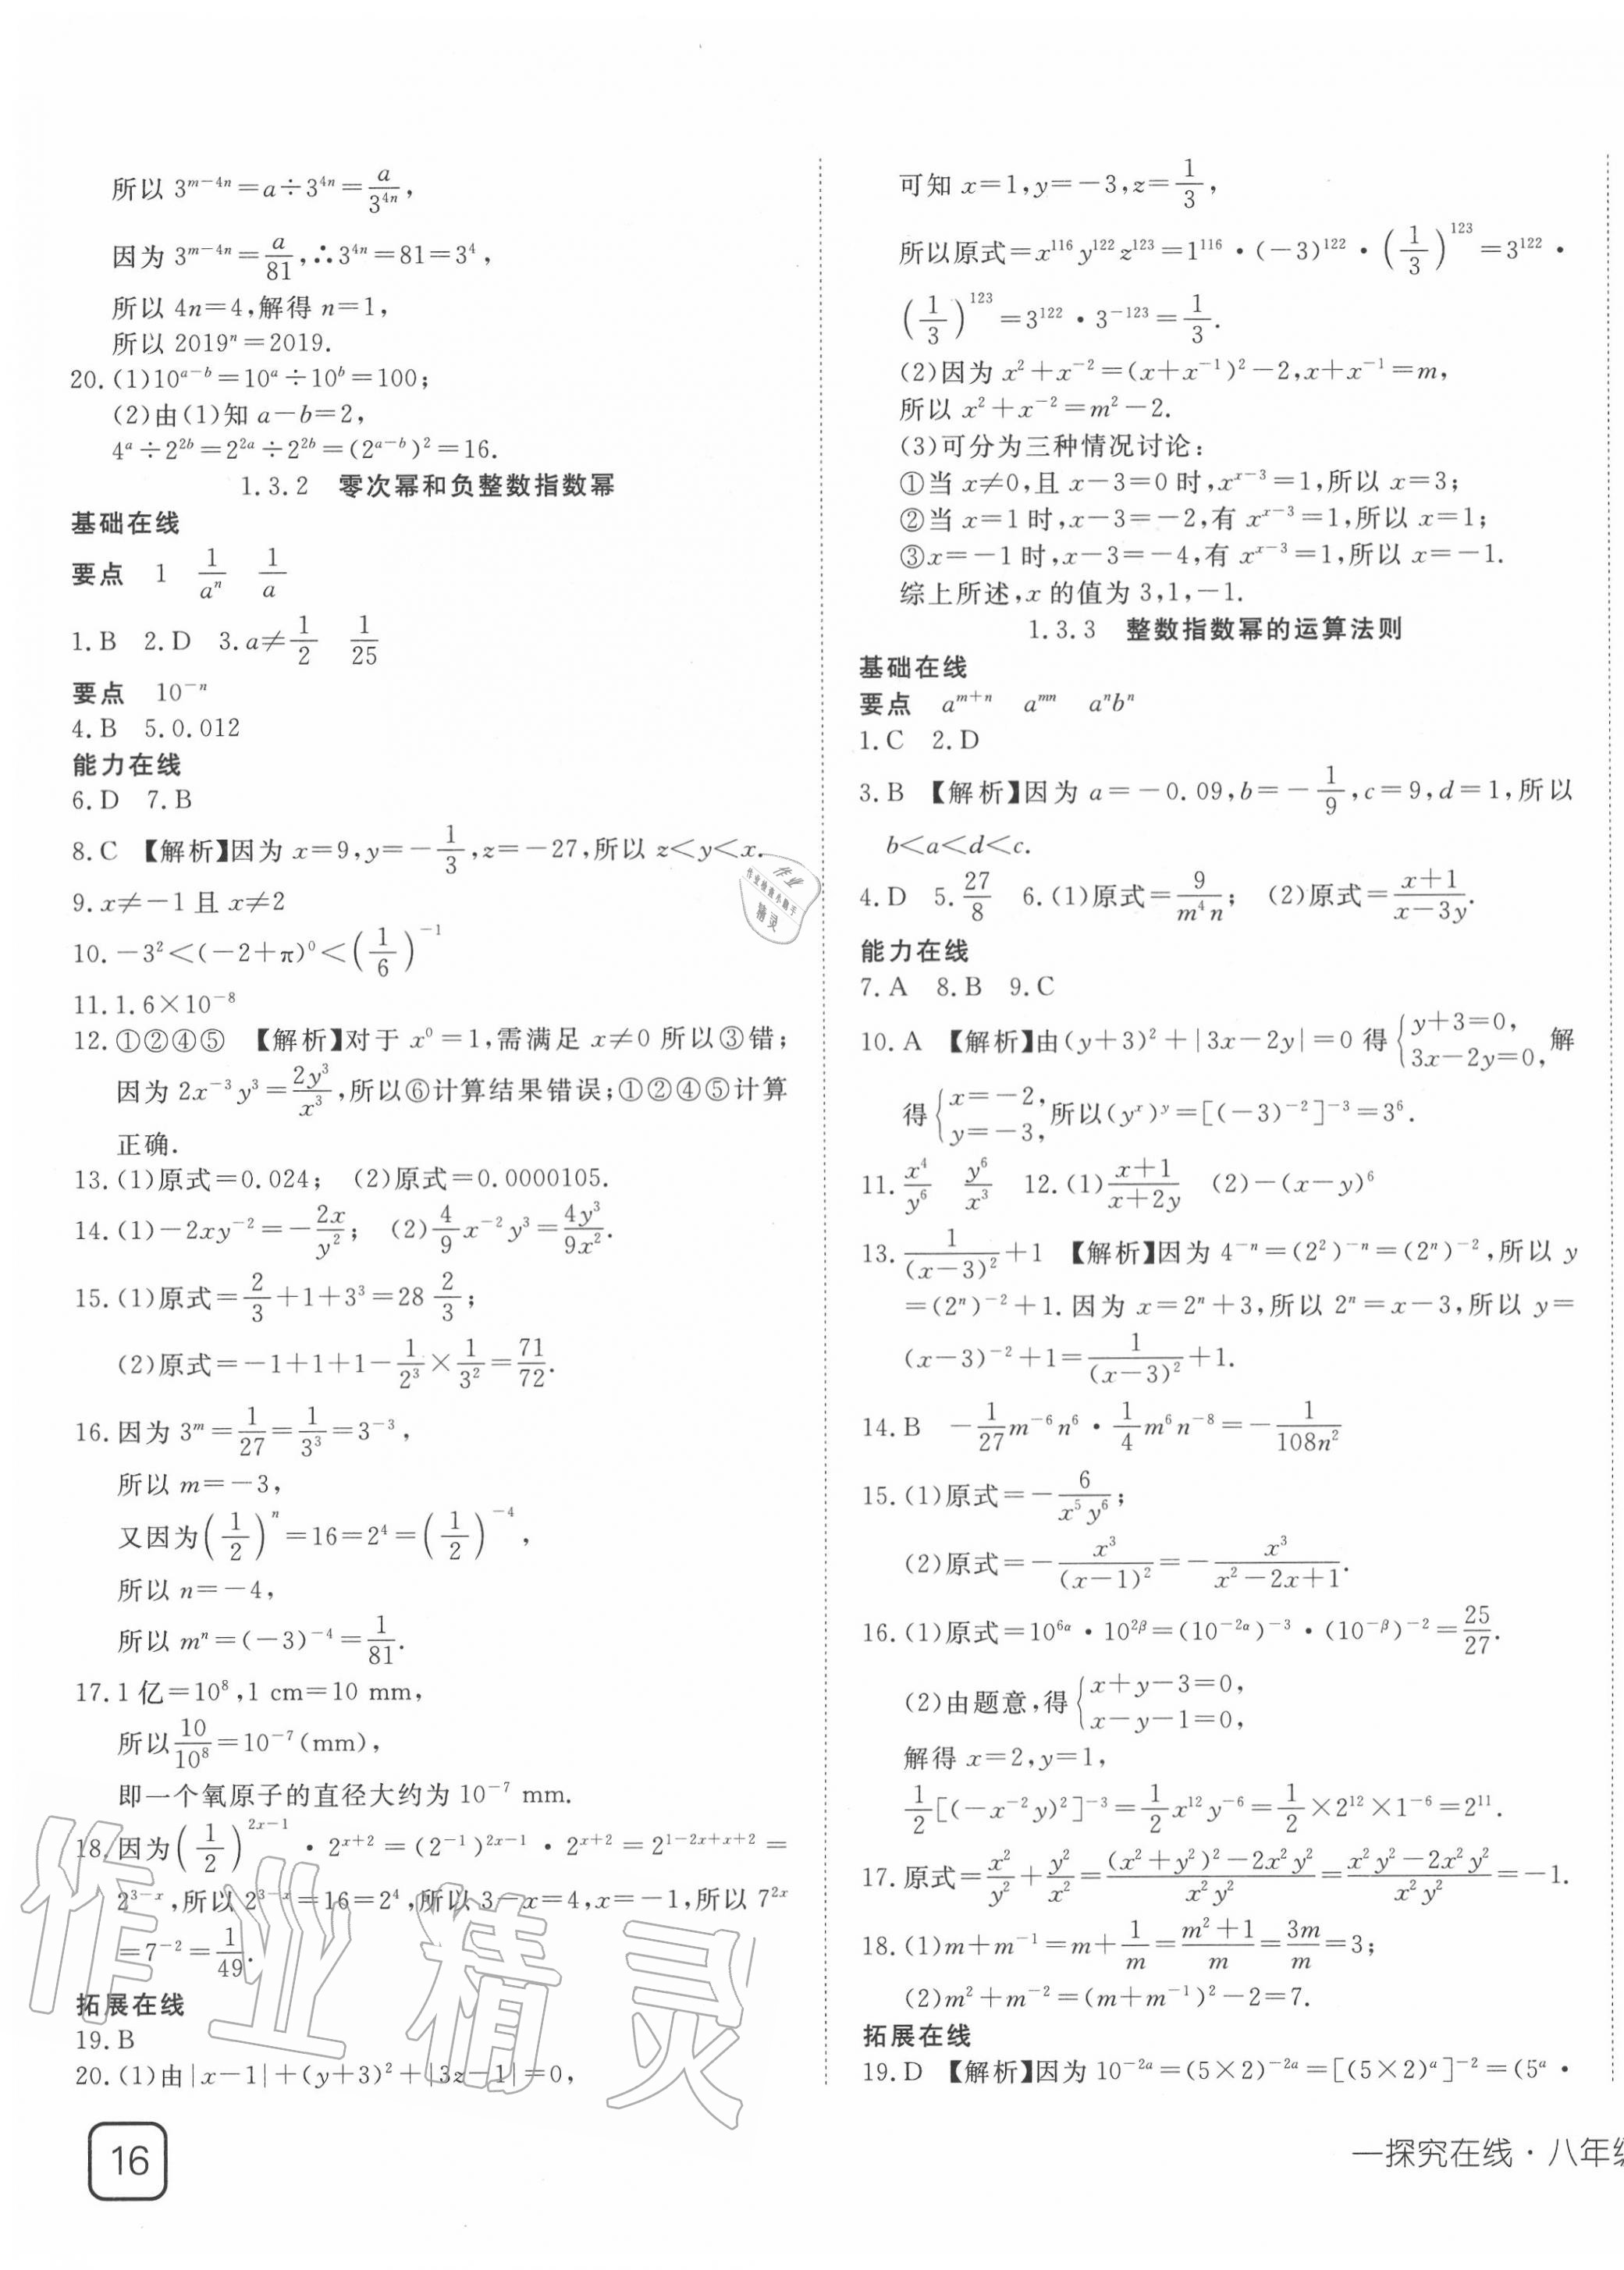 所以 3^{m-4n}=a÷3^{4n}=\frac{a}{3^{4n}},
因为 3^{m-4n}=\frac{a}{81},∴3^{4n}=81=3^4,
所以 4n=4,解得 n=1,
所以 2019^n=2019.
20.(1)10^{a-b}=10^a÷10^b=100;
(2)由(1)知 a-b=2,
4^a÷2^{2b}=2^{2a}÷2^{2b}=(2^{a-b})^2=16.
1.3.2 零次幂和负整数指数幂
基础在线
要点 1 \frac{1}{a^n} \frac{1}{a}
1.B 2.D 3.a≠\frac{1}{2} \frac{1}{25}
要点 10^{-n}
4.B 5.0.012
能力在线
6.D 7.B
8.C 【解析】因为 x=9,y=-\frac{1}{3},z=-27,所以 z<y<x.
9.x≠-1 且 x≠2
10.-3^2<(-2+π)^0<(\frac{1}{6})^{-1}
11.1.6×10^{-8}
12.①②④⑤ 【解析】对于 x^0=1,需满足 x≠0 所以③错;
因为 2x^{-3}y^3=\frac{2y^3}{x^3},所以⑥计算结果错误;①②④⑤计算
正确.
13.(1)原式=0.024; (2)原式=0.0000105.
14.(1)-2xy^{-2}=-\frac{2x}{y^2}; (2)\frac{4}{9}x^{-2}y^3=\frac{4y^3}{9x^2}.
15.(1)原式=\frac{2}{3}+1+3^3=28\frac{2}{3};
(2)原式=-1+1+1-\frac{1}{2^3}×\frac{1}{3^2}=\frac{71}{72}.
16.因为 3^m=\frac{1}{27}=\frac{1}{3^3}=3^{-3},
所以 m=-3,
又因为(\frac{1}{2})^n=16=2^4=(\frac{1}{2})^{-4},
所以 n=-4,
所以 m^n=(-3)^{-4}=\frac{1}{81}.
17.1 亿=10^8,1 cm=10 mm,
所以\frac{10}{10^8}=10^{-7}(mm),
即一个氧原子的直径大约为 10^{-7} mm.
18.因为(\frac{1}{2})^{2x-1}·2^{x+2}=(2^{-1})^{2x-1}·2^{x+2}=2^{1-2x+x+2}=
2^{3-x},所以 2^{3-x}=16=2^4,所以 3-x=4,x=-1,所以 7^{2x}
=7^{-2}=\frac{1}{49}.
拓展在线
19.B
20.(1)由|x-1|+(y+3)^2+|3z-1|=0,
作业精灵
16
可知 x=1,y=-3,z=\frac{1}{3},
所以原式=x^{116}y^{122}z^{123}=1^{116}·(-3)^{122}·(\frac{1}{3})^{123}=3^{122}·
(\frac{1}{3})^{123}=3^{122}·3^{-123}=\frac{1}{3}.
(2)因为 x^2+x^{-2}=(x+x^{-1})^2-2,x+x^{-1}=m,
所以 x^2+x^{-2}=m^2-2.
(3)可分为三种情况讨论:
①当 x≠0,且 x-3=0 时,x^{x-3}=1,所以 x=3;
②当 x=1 时,x-3=-2,有 x^{x-3}=1,所以 x=1;
③x=-1 时,x-3=-4,有 x^{x-3}=1,所以 x=-1.
综上所述,x 的值为 3,1,-1.
1.3.3 整数指数幂的运算法则
基础在线
要点 a^{m+n} a^{mn} a^nb^n
1.C 2.D
3.B 【解析】因为 a=-0.09,b=-\frac{1}{9},c=9,d=1,所以
b<a<d<c.
4.D 5.\frac{27}{8} 6.(1)原式=\frac{9}{m^4n}; (2)原式=\frac{x+1}{x-3y}.
能力在线
7.A 8.B 9.C
10.A 【解析】由(y+3)^2+|3x-2y|=0 得{y+3=0, 3x-2y=0, 解
得{x=-2, y=-3, 所以(y^x)^y=[(-3)^{-2}]^{-3}=3^6.
11.\frac{x^4}{y^6} \frac{y^6}{x^3} 12.(1)\frac{x+1}{x+2y} (2)-(x-y)^6
13.\frac{1}{(x-3)^2}+1 【解析】因为 4^{-n}=(2^2)^{-n}=(2^n)^{-2},所以 y
=(2^n)^{-2}+1.因为 x=2^n+3,所以 2^n=x-3,所以 y=
(x-3)^{-2}+1=\frac{1}{(x-3)^2}+1.
14.B -\frac{1}{27}m^{-6}n^6·\frac{1}{4}m^6n^{-8}=-\frac{1}{108n^2}
15.(1)原式=-\frac{6}{x^5y^6};
(2)原式=-\frac{x^3}{(x-1)^2}=-\frac{x^3}{x^2-2x+1}.
16.(1)原式=10^{6α}·10^{2β}=(10^{-2α})^{-3}·(10^{-β})^{-2}=\frac{25}{27}.
(2)由题意,得{x+y-3=0, x-y-1=0,
解得 x=2,y=1,
\frac{1}{2}[(-x^{-2}y)^2]^{-3}=\frac{1}{2}x^{12}y^{-6}=\frac{1}{2}×2^{12}×1^{-6}=2^{11}.
17.原式=\frac{x^2}{y^2}+\frac{y^2}{x^2}=\frac{(x^2+y^2)^2-2x^2y^2}{x^2y^2}=\frac{x^2y^2-2x^2y^2}{x^2y^2}=-1.
18.(1)m+m^{-1}=m+\frac{1}{m}=\frac{m^2+1}{m}=\frac{3m}{m}=3;
(2)m^2+m^{-2}=(m+m^{-1})^2-2=7.
拓展在线
19.D 【解析】因为 10^{-2a}=(5×2)^{-2a}=[(5×2)^a]^{-2}=(5^a·
—探究在线·八年